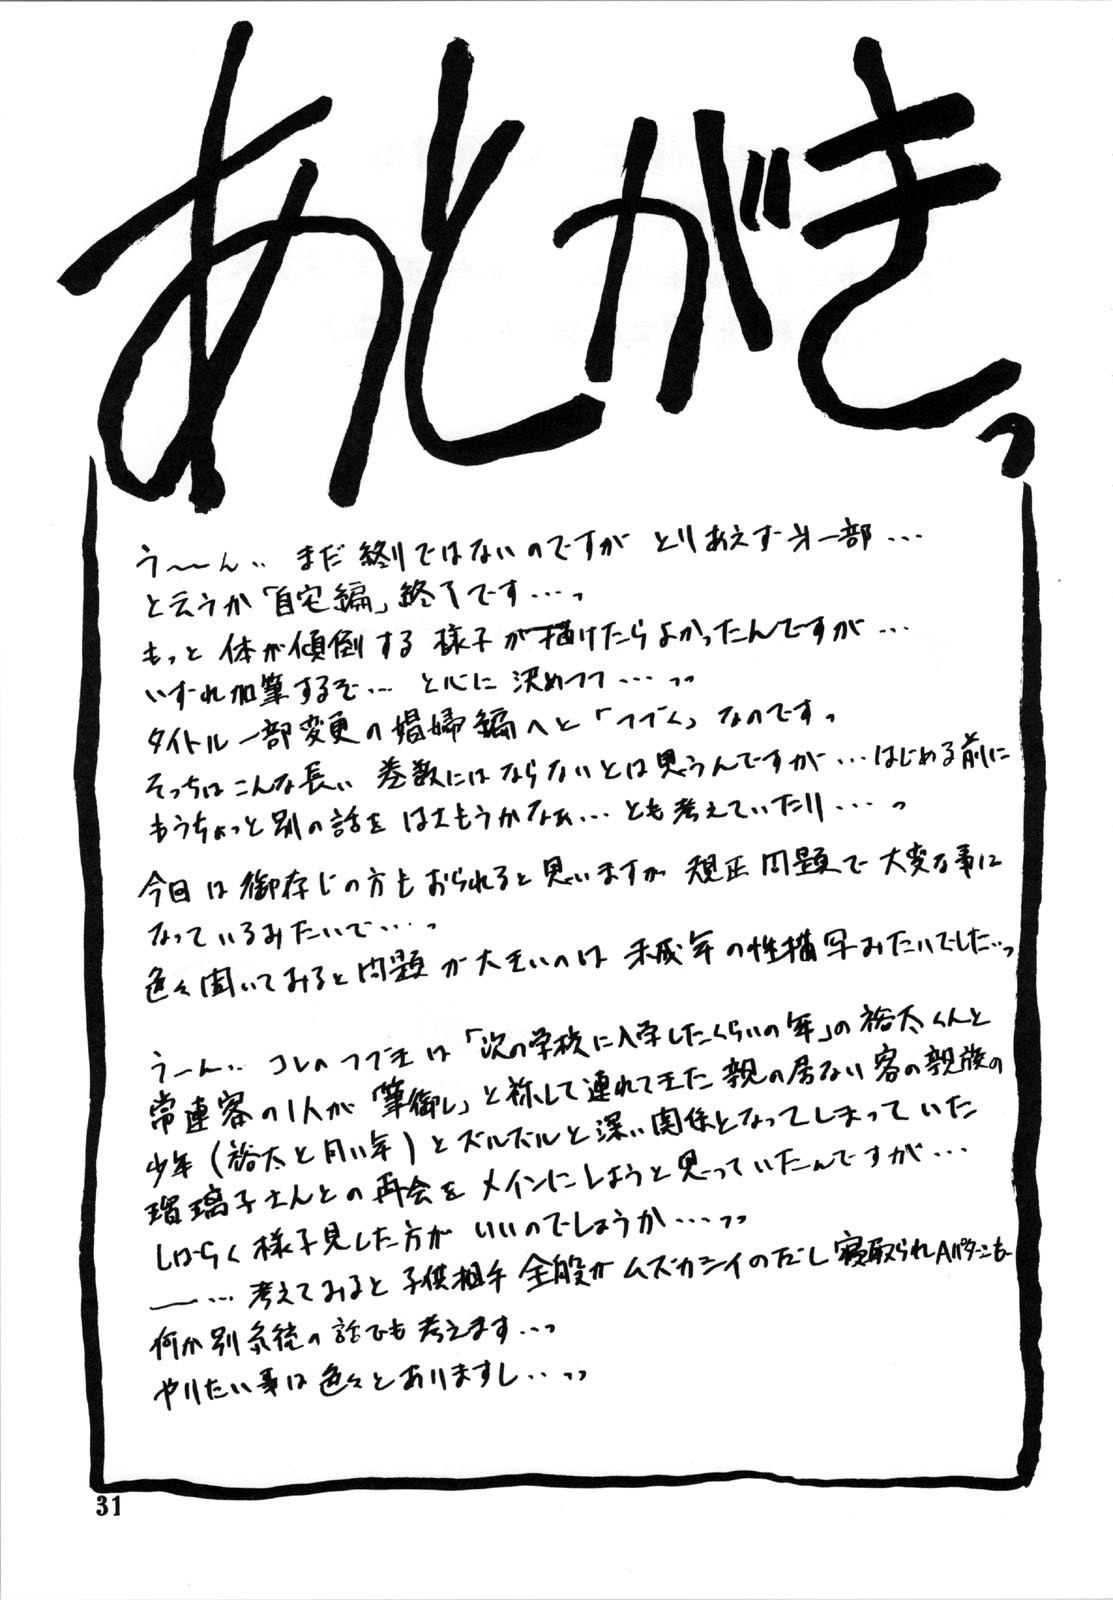 あとがきっ
う〜〜ん.. まだ終りではないのですが とりあえず才一部...
と云うか「自宅編」終了です...っ
もっと 体が傾倒する 様子が描けたらよかったんですが...
いずれ加筆するぞ... と心に 決めつつ...っっ
タイトル一部変更の娼婦編へと「つづく」なのです。
そっちはこんな長い 巻数にはならないとは思うんですが...はじめる前に
もうちょっと別の話をはさもうかなぁ...とも考えていたり...っ
今回は御存じの方もおられると思いますが 規正問題で大変な事に
なっているみたいで...っ
色々聞いてみると問題が大きいのは 未成年の性描写みたいでした..っ
うーん.. コレのつづきは「次の学校に入学したくらいの年」の裕太くんと
常連客の1人が「筆御し」と称して連れてきた 親の居ない客の親族の
少年(裕太と同い年)とズルズルと深い関係となってしまっていた
瑠璃子さんとの再会をメインにしようと思っていたんですが...
しばらく様子見した方が いいのでしょうか...っっ
ー... 考えてみると 子供相手 全般がムズカシイのだし 寝取られAパターンも
何か別系統の話でも考えます...っ
やりたい事は色々とありますし..っっ
31